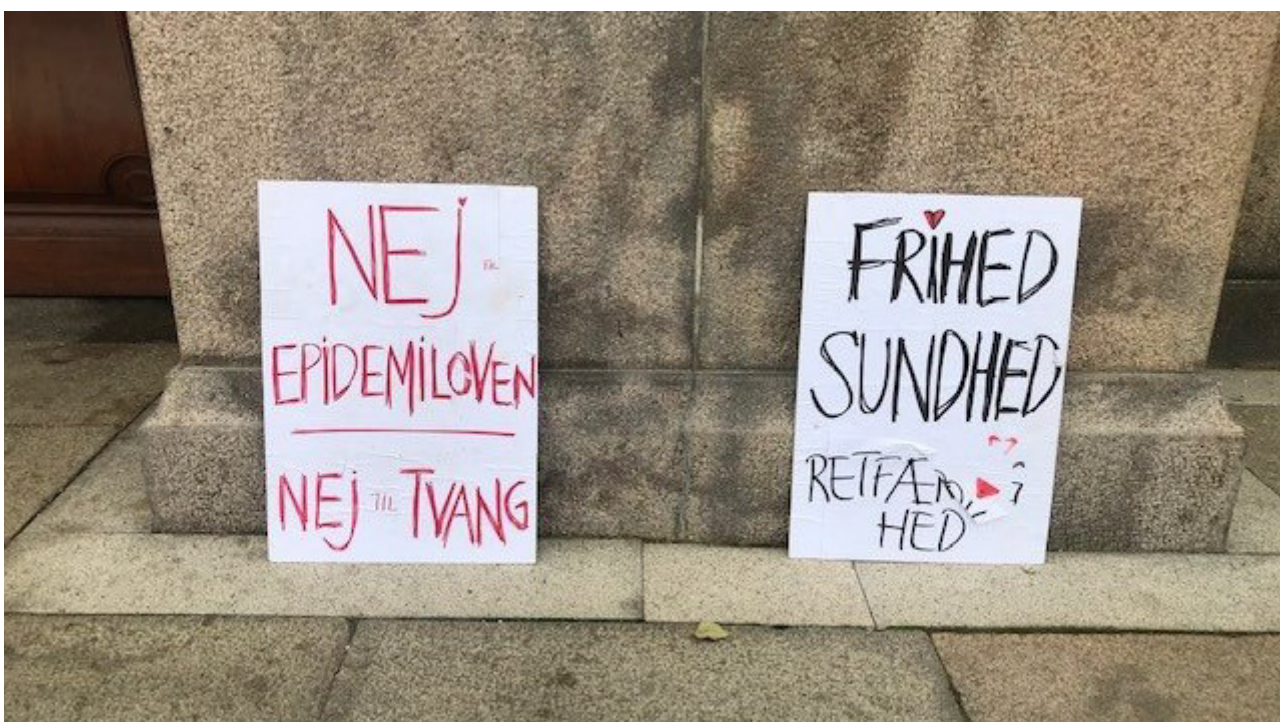 NEJ
EPIDEMILOVEN
NEJ TIL TVANG
FRIHED
SUNDHED
HED